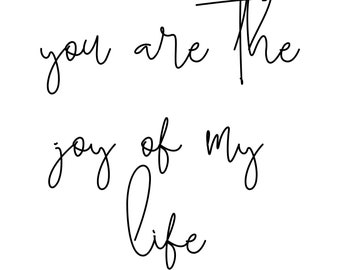 you are the
joy of my
life